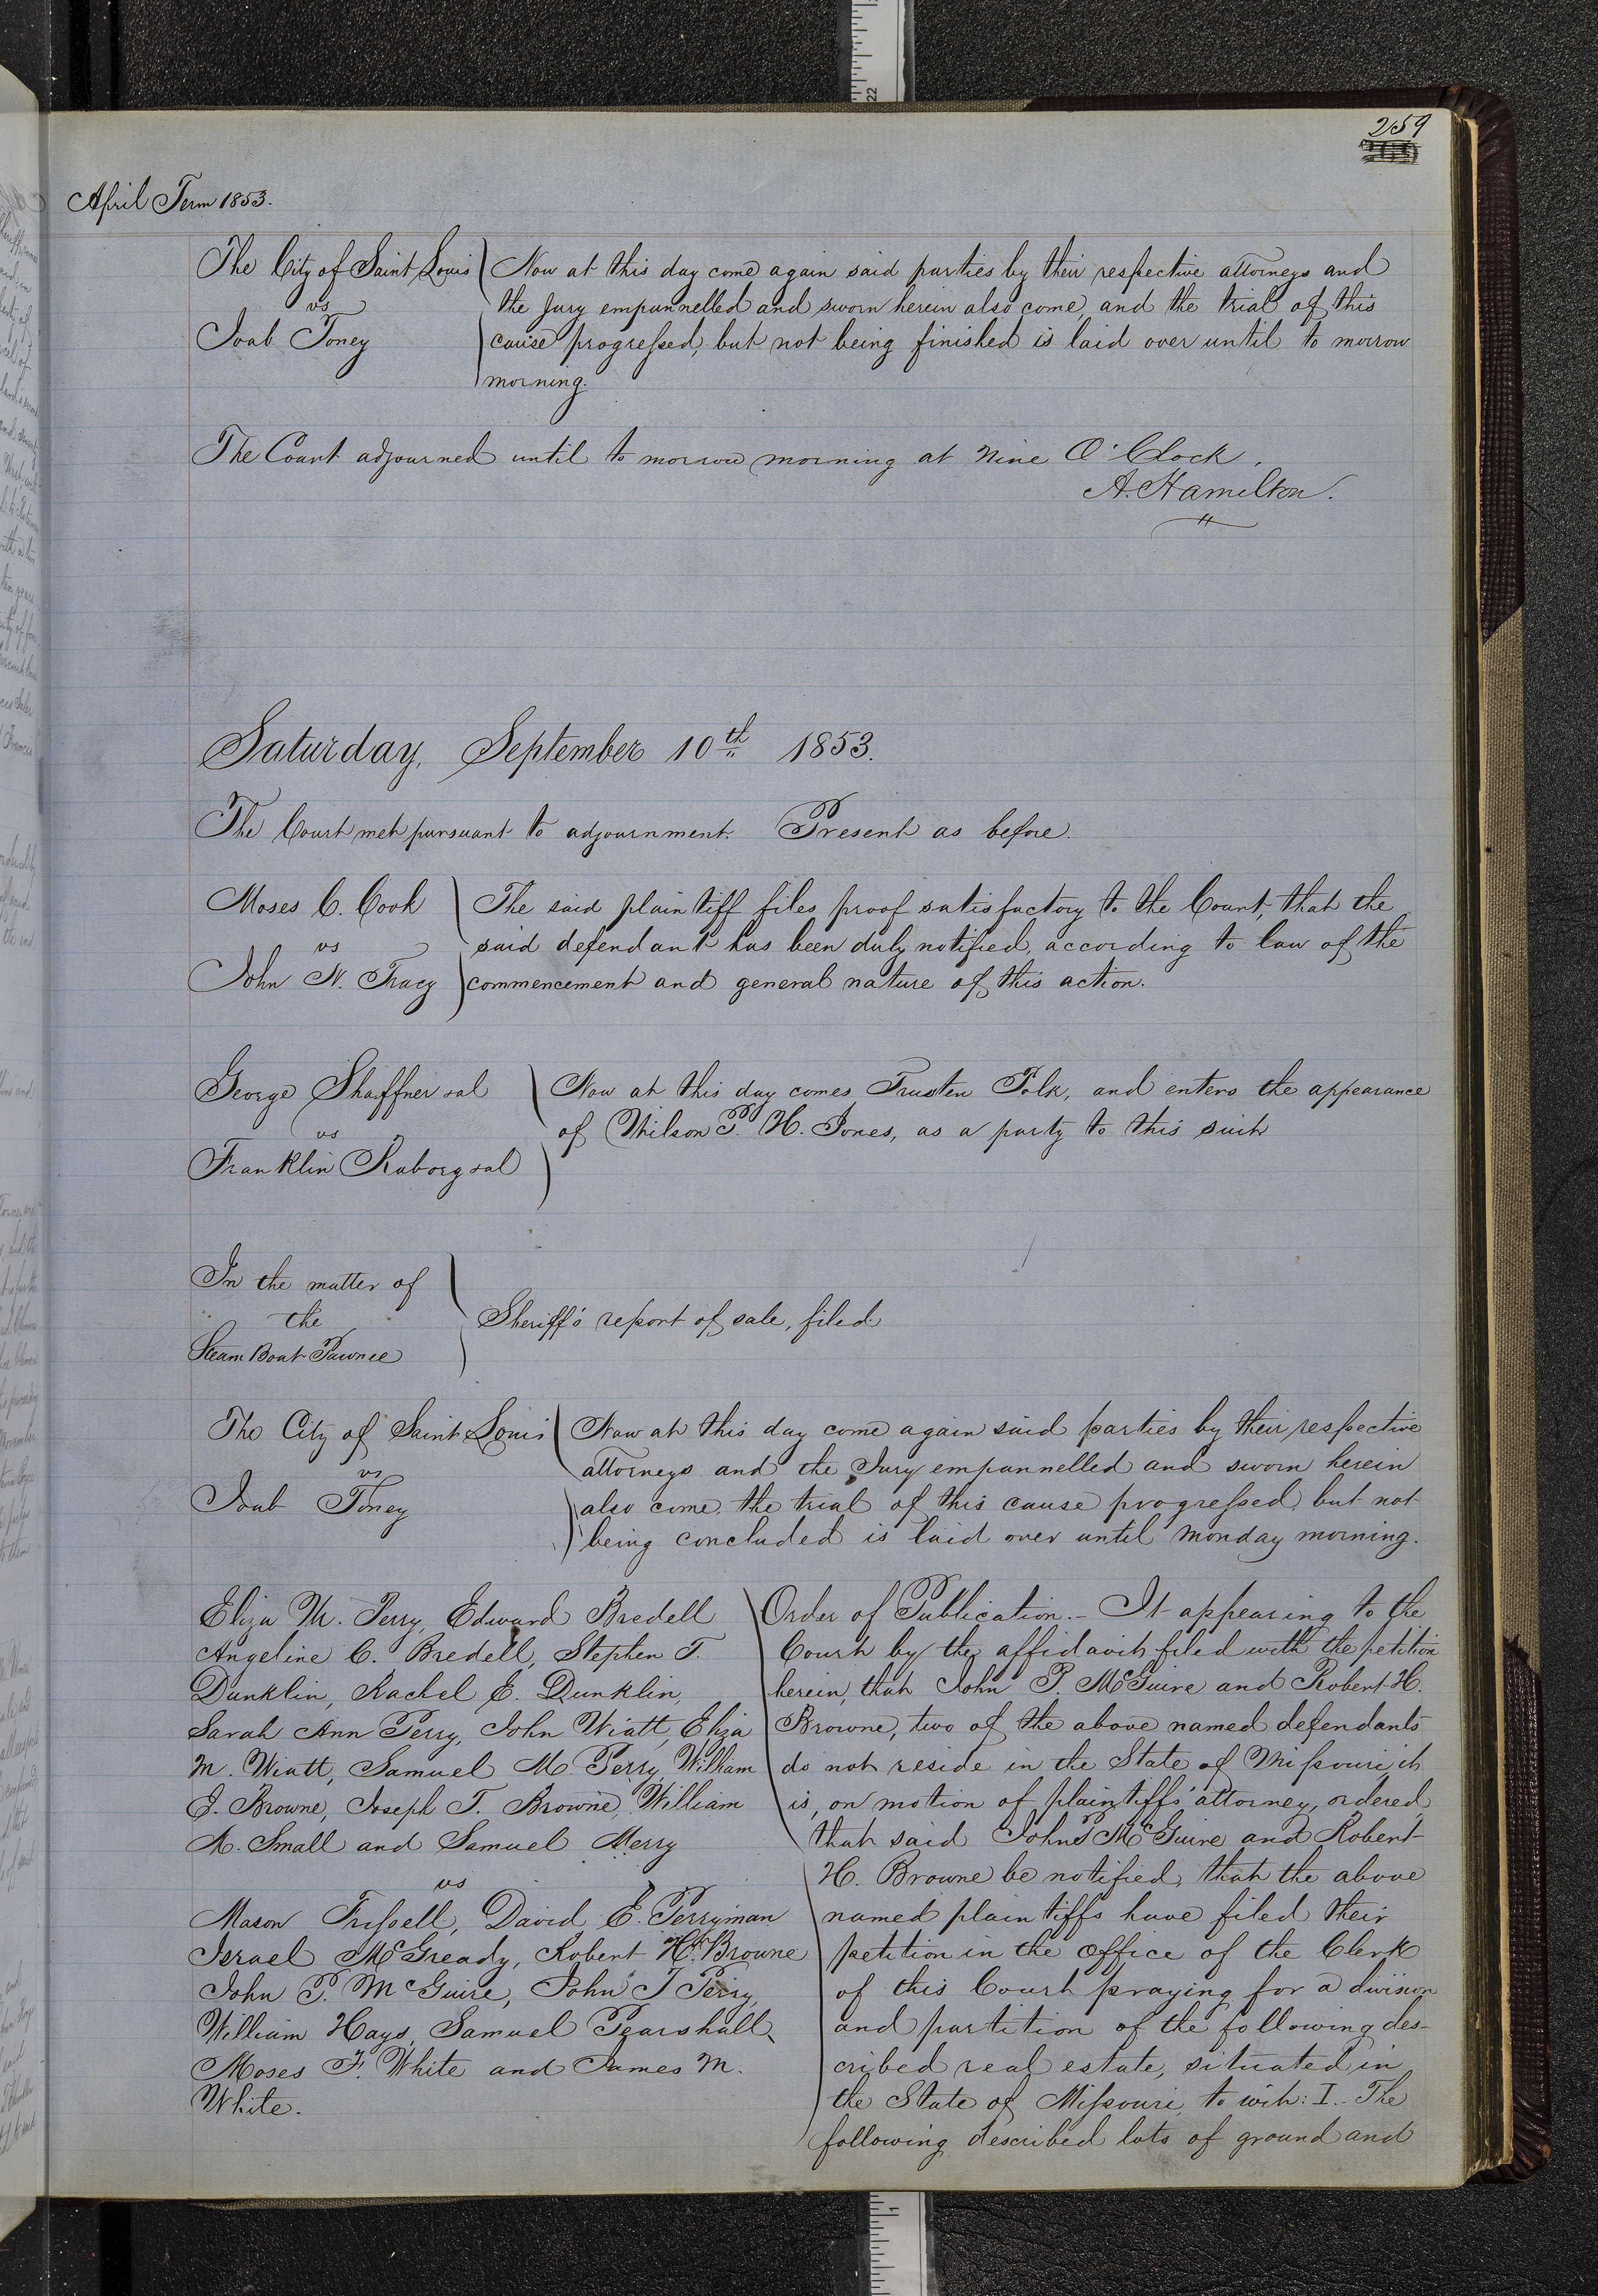 259
April Term 1853.
The City of Saint Louis
vs
Joab Toney
Now at this day come again said parties by their respective attorneys and
the Jury empannelled and sworn herein also come, and the trial of this
cause progressed, but not being finished is laid over until to morrow
morning.
The Court adjourned until to morrow morning at Nine O'Clock.
A. Hamilton.
Saturday, September 10th 1853.
The Court met pursuant to adjournment. Present as before.
Moses C. Cook
vs
John N. Tracy
The said plaintiff files proof satisfactory to the Court, that the
said defendant has been duly notified, according to law of the
commencement and general nature of this action.
George Shaffner & al
vs
Franklin Raborg & al
Now at this day comes Trusten Polk, and enters the appearance
of Wilson P. H. Jones, as a party to this suit
In the matter of
the
Steam Boat Pawnee
Sheriff's report of sale, filed
The City of Saint Louis
vs
Joab Toney
Now at this day come again said parties by their respective
attorneys and the Jury empannelled and sworn herein
also come, the trial of this cause progressed, but not
being concluded is laid over until Monday morning.
Eliza M. Perry, Edward Bredell
Angeline C. Bredell, Stephen T.
Dunklin, Rachel E. Dunklin,
Sarah Ann Perry, John Wiatt, Eliza
M. Wiatt, Samuel M. Perry, William
J. Browne, Joseph T. Browne, William
A. Small and Samuel Merry
vs
Mason Frissell, David E. Perryman
Israel McGready, Robert H. Browne
John P. McGuire, John J Perry,
William Hays, Samuel Pearshall,
Moses F. White and James M.
White.
Order of Publication. - It appearing to the
Court by the affidavit filed with the petition
herein, that John P. McGuire and Robert H.
Browne, two of the above named defendants
do not reside in the State of Missouri it
is, on motion of plaintiffs' attorney, ordered,
that said John P McGuire and Robert
H. Browne be notified, that the above
named plaintiffs have filed their
petition in the office of the Clerk
of this Court praying for a division
and partition of the following des-
cribed real estate, situated in
the State of Missouri, to wit: I.- The
following described lots of ground and